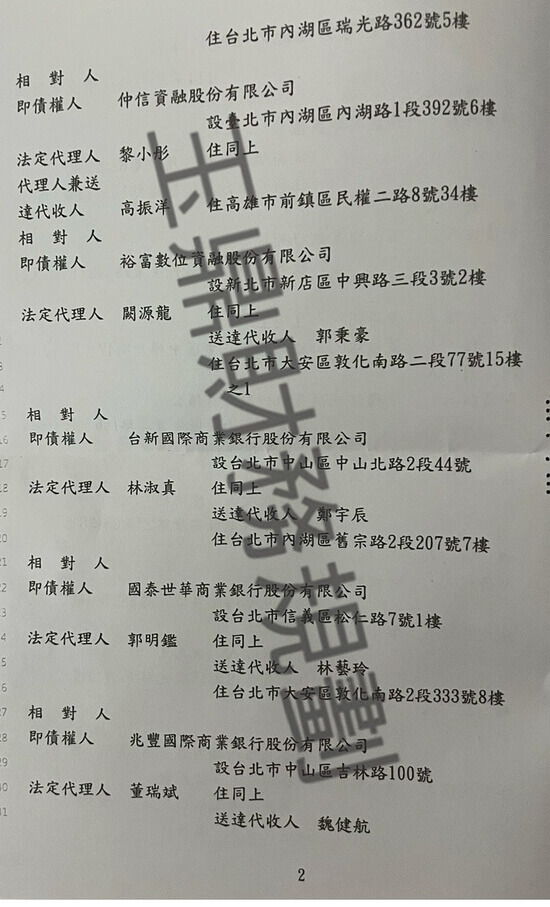 住台北市內湖區瑞光路362號5樓
相 對 人
即債權人 仲信資融股份有限公司
設臺北市內湖區內湖路1段392號6樓
法定代理人 黎小彤 住同上
代理人兼送
達代收人 高振洋 住高雄市前鎮區民權二路8號34樓
相 對 人
即債權人 裕富數位資融股份有限公司
設新北市新店區中興路三段3號2樓
法定代理人 闕源龍 住同上
送達代收人 郭秉豪
住台北市大安區敦化南路二段77號15樓
之1
相 對 人
即債權人 台新國際商業銀行股份有限公司
設台北市中山區中山北路2段44號
法定代理人 林淑真 住同上
送達代收人 鄭宇辰
住台北市內湖區舊宗路2段207號7樓
相 對 人
即債權人 國泰世華商業銀行股份有限公司
設台北市信義區松仁路7號1樓
法定代理人 郭明鑑 住同上
送達代收人 林藝玲
住台北市大安區敦化南路2段333號8樓
相 對 人
即債權人 兆豐國際商業銀行股份有限公司
設台北市中山區吉林路100號
法定代理人 董瑞斌 住同上
送達代收人 魏健航
2
玉鼎財務規劃